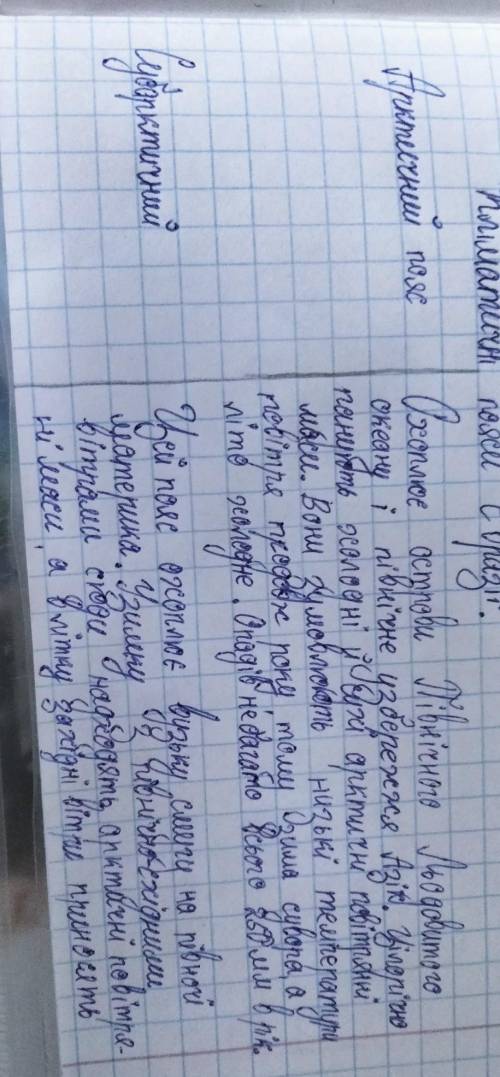 Кліматичні пояси Євразії.
Арктичний пояс
Охоплює острови Північного Льодовитого
океану і північне узбережжя Азії. Цілорічно
панують холодні й сухі арктичні повітряні
маси. Вони зумовлюють низькі температури
повітря продовж року тому зима сувора а
літо холодне. Опадів небагато всього 250 мм в рік.
Субарктичний
Цей пояс охоплює вузьку смугу на півночі
материка. Узимку із північно-східними
вітрами сюди надходять арктичні повітря-
ні маси, а влітку західні вітри приносять